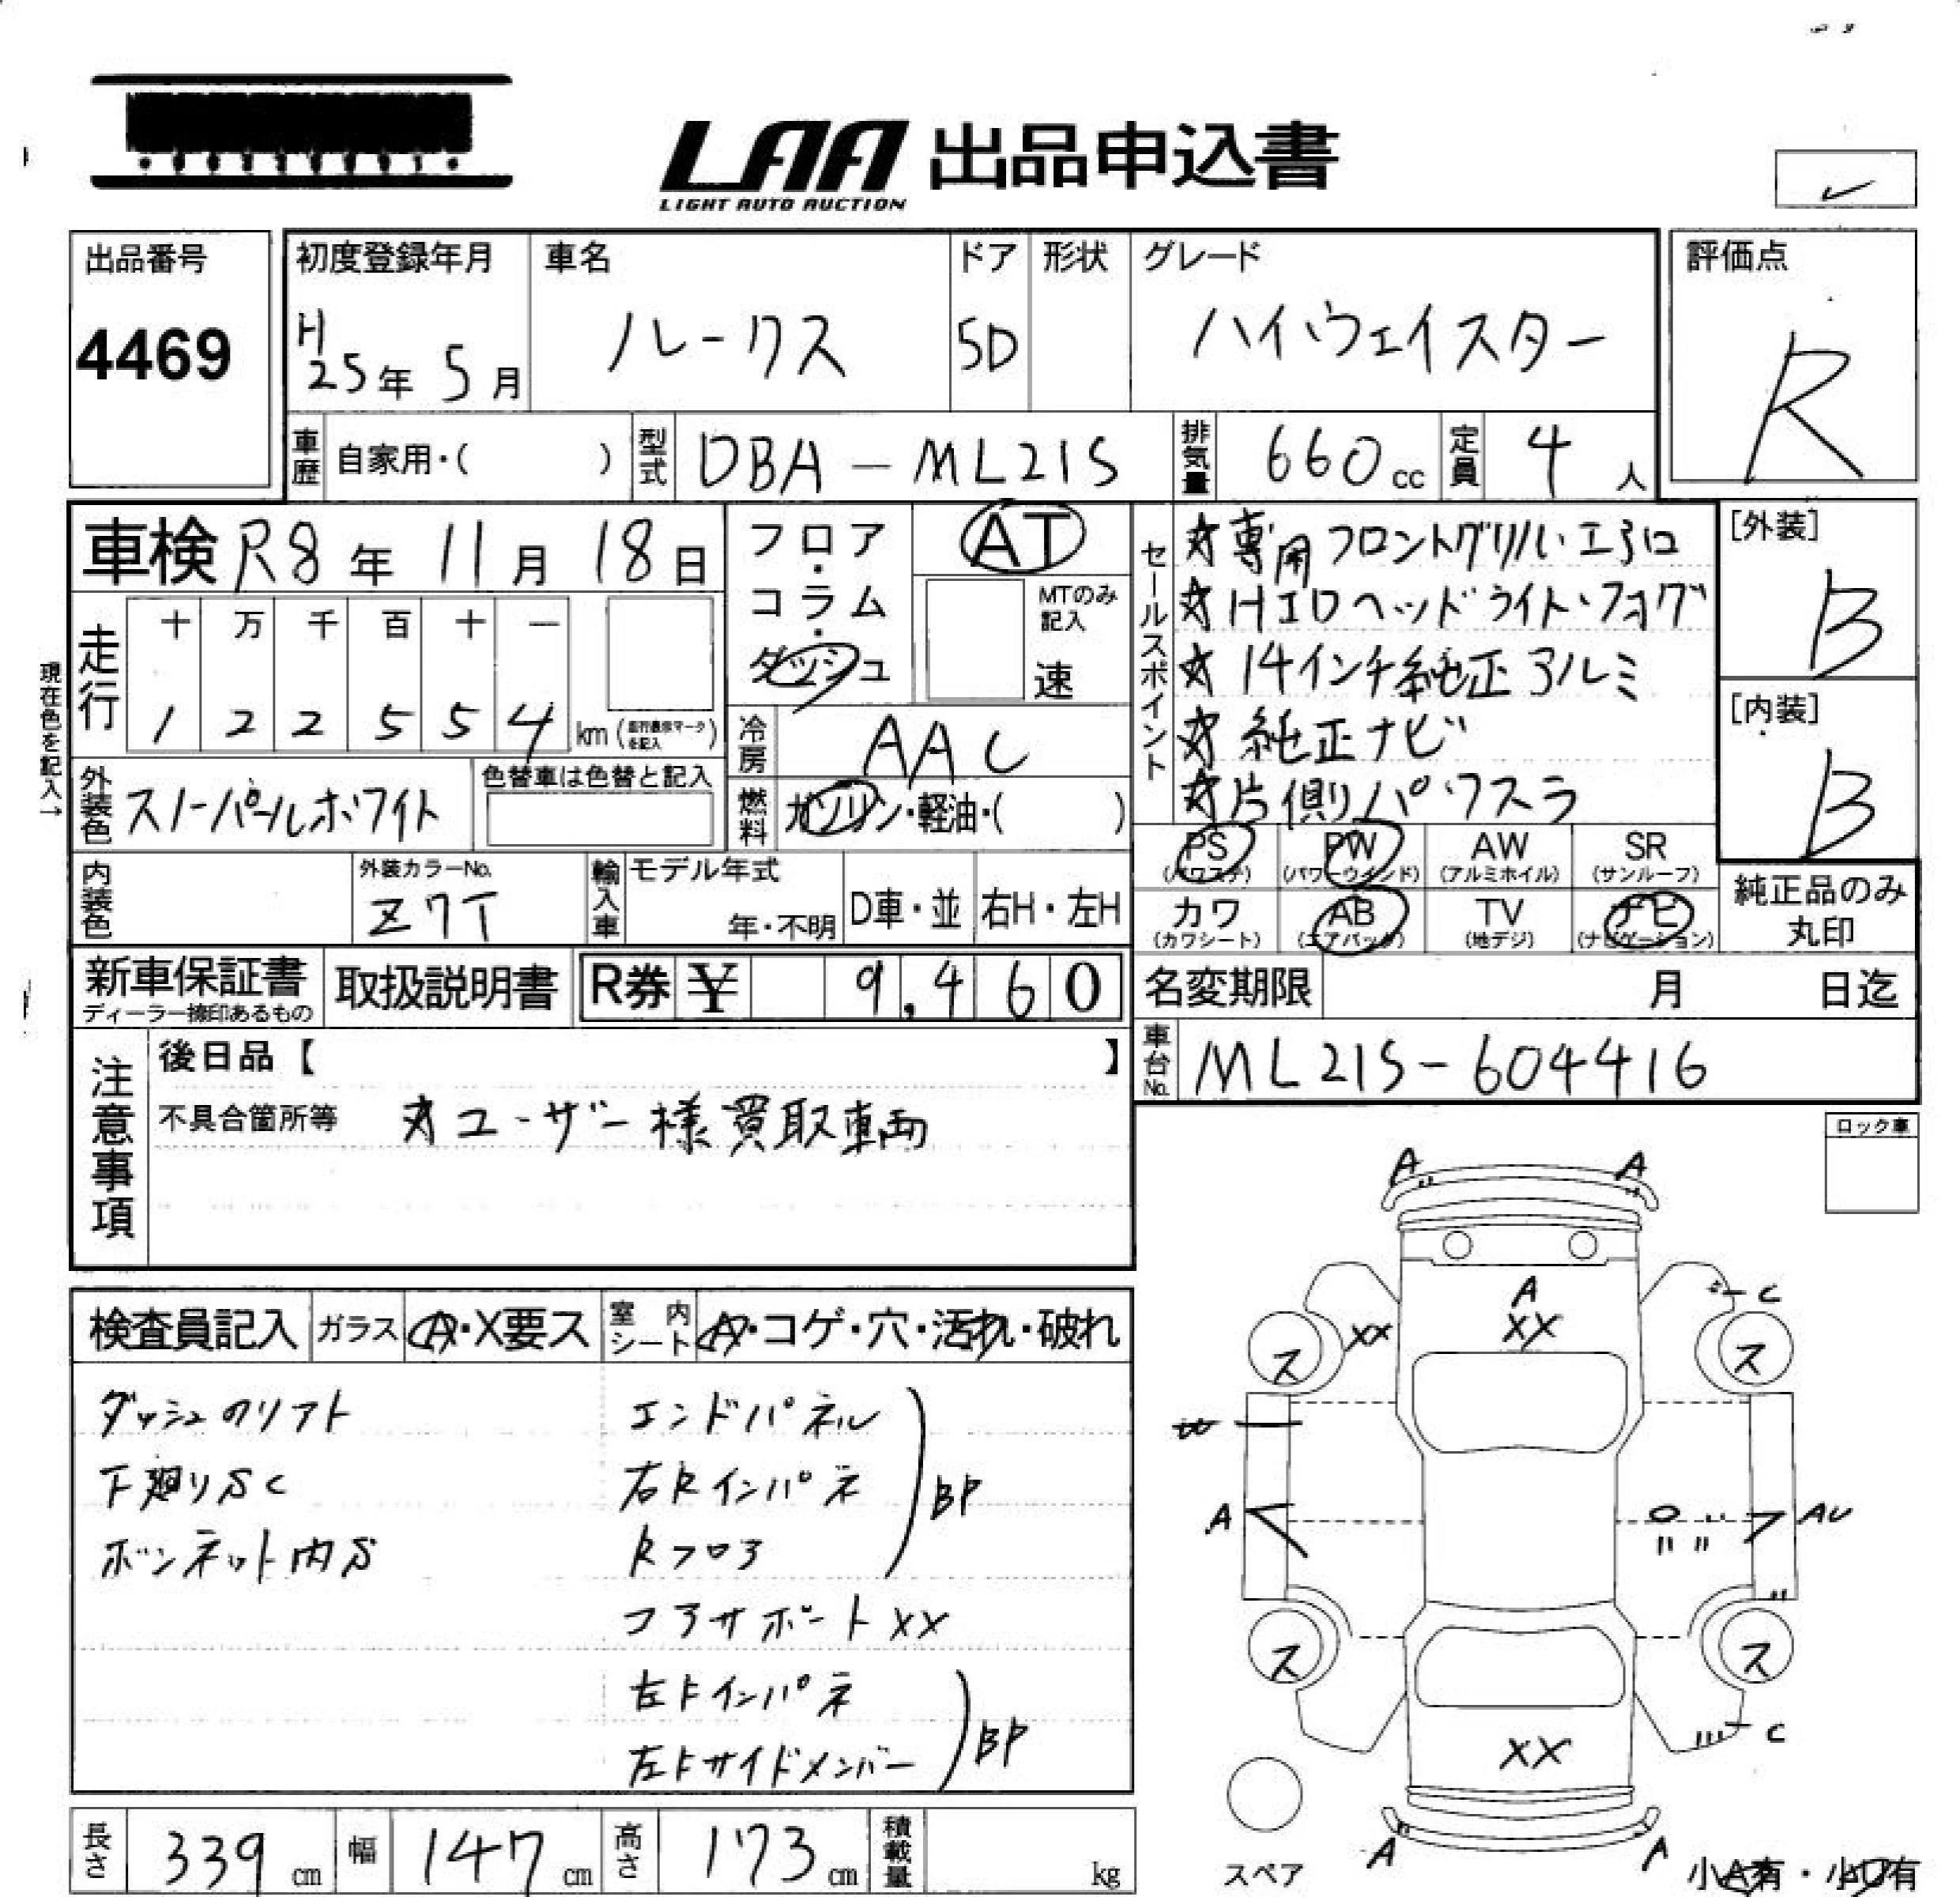 LAA 出品申込書
LIGHT AUTO AUCTION
出品番号
4469
初度登録年月
H25年 5月
車名
ルークス
ドア
5D
形状
グレード
ハイウェイスター
評価点
R
車歴 自家用・( )
型式 DBA-ML21S
排気量 660cc
定員 4人
車検 R8年 11月 18日
フロア・コラム・ダッシュ
AT
MTのみ記入
速
走行
十 万 千 百 十 一
1 2 2 5 5 4 km
現在色を記入→
冷房 AAC
燃料 ガソリン・軽油・( )
外装色 スノーパールホワイト
色替車は色替と記入
内装色
外装カラーNo.
Z7T
輸入車 モデル年式
年・不明
D車・並 右H・左H
セールスポイント
☆専用フロントグリル・エアロ
☆HIDヘッドライト・フォグ
☆14インチ純正アルミ
☆純正ナビ
☆片側パワスラ
[外装]
B
[内装]
B
PS (パワステ) PW (パワーウインド) AW (アルミホイル) SR (サンルーフ)
カワ (カワシート) AB (エアバック) TV (地デジ) ナビ (ナビゲーション)
純正品のみ丸印
新車保証書
ディーラー捺印あるもの
取扱説明書
R券 ¥ 9,460
名変期限 月 日迄
車台No. ML21S-604416
注意事項
後日品【 】
不具合箇所等 ☆ユーザー様買取車両
ロック車
検査員記入 ガラス A・X要ス 室内シート A・コゲ・穴・汚れ・破れ
ダッシュのリアト
下廻りSC
ボンネット内S
エンドパネル
右Rインパネ
Rフロア
BP
コアサポートXX
左Fインパネ
左Fサイドメンバー
BP
A A
A
XX
XX
C
ス ス
W
A
AU
ス ス
C
XX
A A
スペア
小A有・小U有
長さ 339cm 幅 147cm 高さ 173cm 積載量 kg